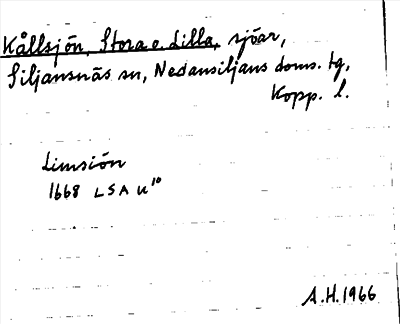 Kållsjön, Stora o. Lilla, sjöar,
Siljansnäs sn, Nedansiljans doms. tg,
Kopp. l.
Limsión
1668 LSA U¹⁰
A.H. 1966